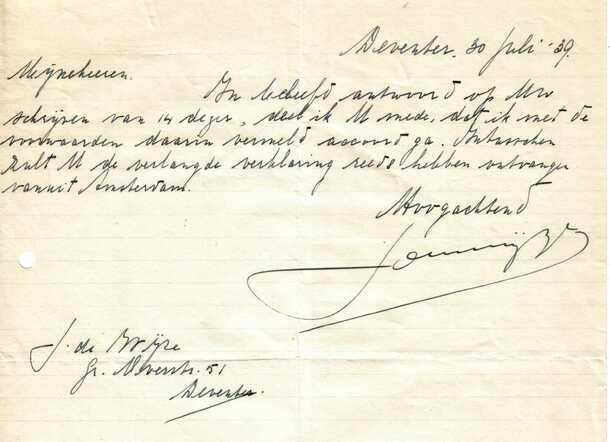 Deventer, 30 Juli -39.
Mijneheeren.
In beleefd antwoord op Uw
schrijven van 14 dezer, deel ik U mede, dat ik met de
voorwaarden daarin vermeld accoord ga. Intusschen
zult U de verlangde verklaring reeds hebben ontvangen
vanuit Amsterdam.
Hoogachtend
J. de Wijze
Gr. Overstr. 51
Deventer.